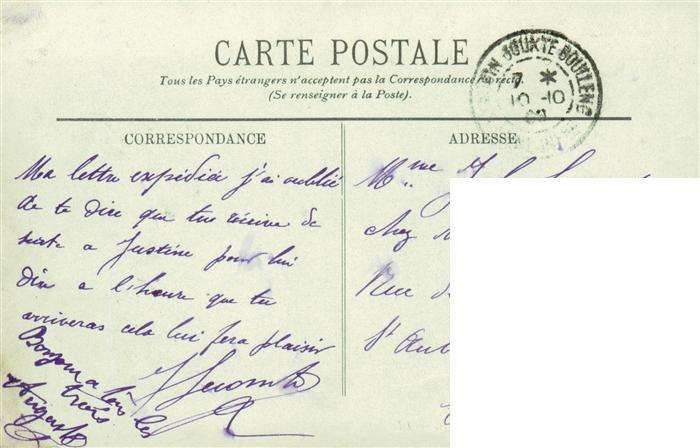 CARTE POSTALE
Tous les Pays étrangers n'acceptent pas la Correspondance au recto
(Se renseigner à la Poste).
JOUXTE BOULLENG
7 *
10 -10
CORRESPONDANCE
Ma lettre expédiée j'ai oublié
de te dire que tu écrive de
suite a Justine pour lui
dire a l'heure que tu
arriveras cela lui fera plaisir
Bonjour a tous les
trois
ADRESSE
Mme
chez
Rue
St Aub